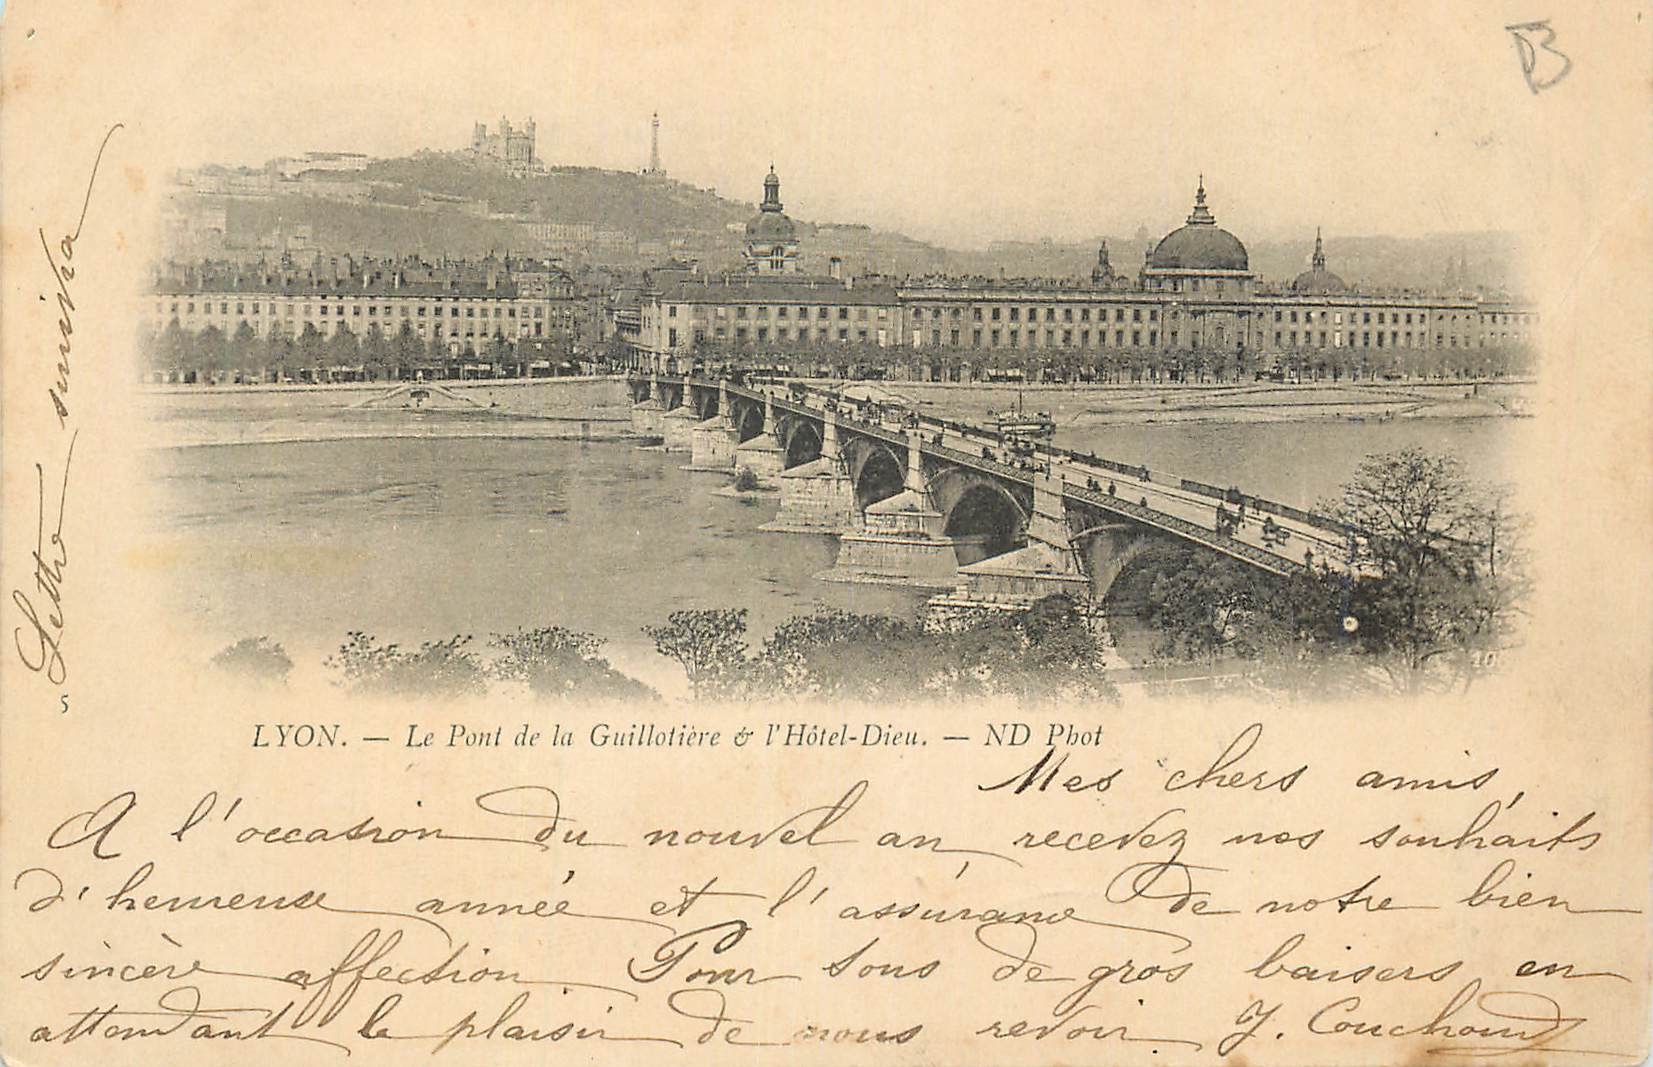 B
Lettre suivra
5
LYON. — Le Pont de la Guillotière & l'Hôtel-Dieu. — ND Phot
Mes chers amis,
A l'occasion du nouvel an, recevez nos souhaits
d'heureuse année et l'assurance de notre bien
sincère affection. Pour tous de gros baisers en
attendant le plaisir de nous revoir. J. Couchoud